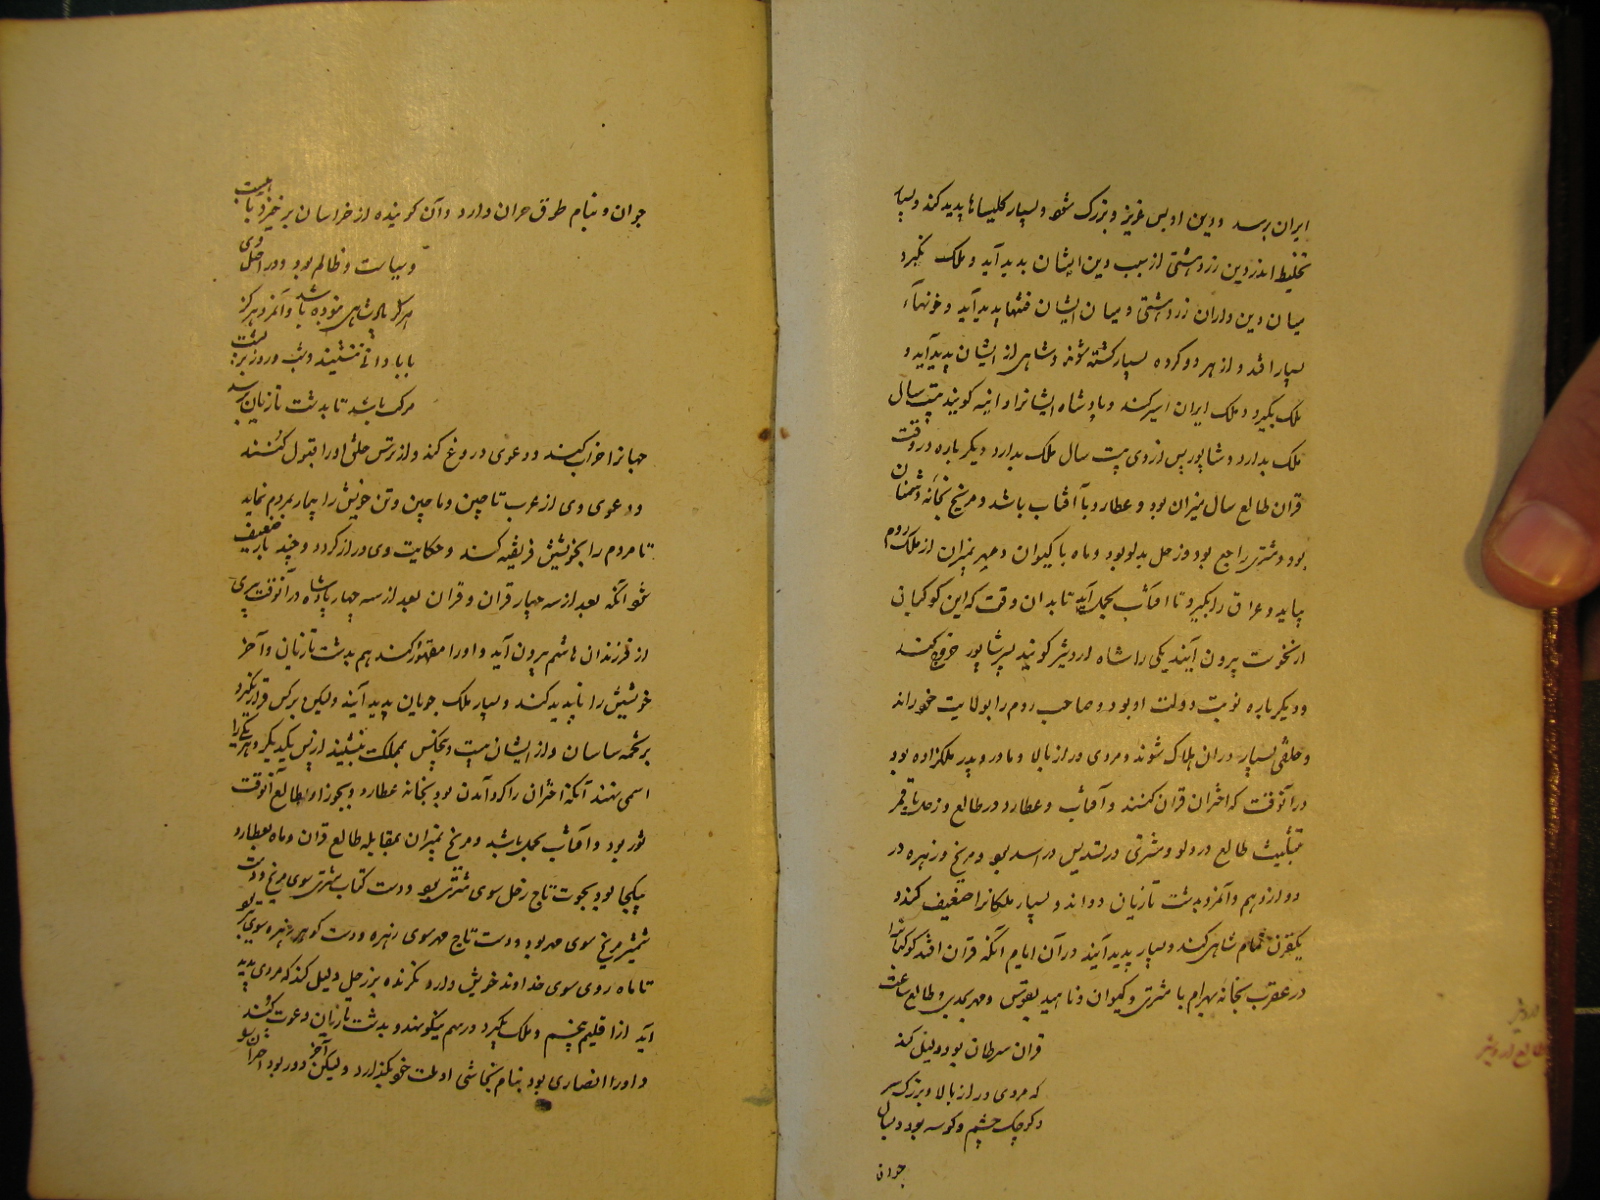 ایران برسد و دین او بس عزیز و بزرک شود و بسیار کلیساها پدید کند و بسیار
تخلیط اندر دین زردهشتی از سبب دین ایشان پدید آید و ملک بگیرد
میان دین داران زردهشتی و میان ایشان فتنها پدید آید و خونهاء
بسیار افتد و از هر دو کروه بسیار کشته شوند و شاهی از ایشان پدید آید و
ملک بگیرد و ملک ایران اسیر کند و پادشاه ایشانرا کویند بیست سال
ملک بدارد و شاپور پس از وی بیست سال ملک بدارد دیکر باره در وقت
قران طالع سال میزان بود و عطارد با آفتاب باشد و مریخ بخانه دشمنان
بود و مشتری راجع بود و زحل بدلو بود و ماه با کیوان و مهر بمیزان از ملک روم
بیاید و عراق را بگیرد تا آفتاب بحمل آید تا بدان وقت که این کوکبان
از نحوست بیرون آیند یکی را شاه اردشیر کویند پسر شاپور خروج کند
و دیکر باره نوبت دولت او بود و صاحب روم را بولایت خود راند
و خلقی بسیار دران هلاک شوند و مردی دراز بالا و مادر و پدر ملکزاده بود
در آنوقت که اختران قران کنند و آفتاب و عطارد در طالع و زحل با قمر
بتثلیث طالع در دلو و مشتری در تسدیس در اسد بود و مریخ و زهره در
دوازدهم و آنمرد بدشت تازیان دواند و بسیار ملکانرا ضعیف کند و
یکقرن تمام شاهی کند و بسیار پدید آیند در آن ایام آنکه قران افتد کوکبانرا
در عقرب بخانه بهرام با مشتری و کیوان و ناهید بقوس و مهر بجدی و طالع ساعت
قران سرطان بود دلیل کند
که مردی دراز بالا و بزرک سر
و کوچک چشم و کوسه بود و بسال
جوان
طالع اردشیر
جوان و بنام طوق حران دارد و آن کوینده از خراسان برخیزد با هیبت
و سیاست و ظالم بود و در اصل وی
هرکز شاهی نبوده باشد و آنمرد هرکز
بابادانی ننشیند و شب و روز بر پشت
مرکب باشد تا بدشت تازیان رسد
جهانرا خراب کند و دعوی دروغ کند و از ترس خلق او را قبول کنند
و دعوی وی از عرب تا چین و ماچین و تن خویش را بیمار بمردم نماید
تا مردم را بخویشتن فریفته کند و حکایت وی دراز کردد و چند بار ضعیف
شود آنکه بعد از سه چهار قران و قران بعد از سه چهار پادشاه در آنوقت پیری
از فرزندان هاشم بیرون آید و او را مقهور کند هم بدشت تازیان و آخر
خویشتن را ناپدید کند و بسیار ملک جویان پدید آیند ولیکن بر کس قرار نکیرد
بر تخمه ساسان و از ایشان بیست و پنجکس بمملکت بنشیند از پس یکدیکر و هر یکی را
اسمی نهند آنکه اختران را کرد آمدن بود بخانه عطارد و بجوزا و طالع آنوقت
ثور بود و آفتاب بحمل باشد و مریخ بمیزان بمقابله طالع قران و ماه بعطارد
بیکجا بود بحوت تاج زحل سوی مشتری بود و دست کتاب مشتری سوی مریخ و دست
شمشیر مریخ سوی مهر بود و دست تاج مهر سوی زهره و دست کوهر زهره سوی تیر بود
تا ماه روی سوی خداوند خویش دارد نکرنده بزحل دلیل کند که مردی پدید
آید از اقلیم پنجم و ملک بکیرد درهم میکوبند و بدشت تازیان دعوت کند
و او را انصاری بود بنام نجاشی او ملت خود بکذارد ولیکن آخر دور بود اختران بود